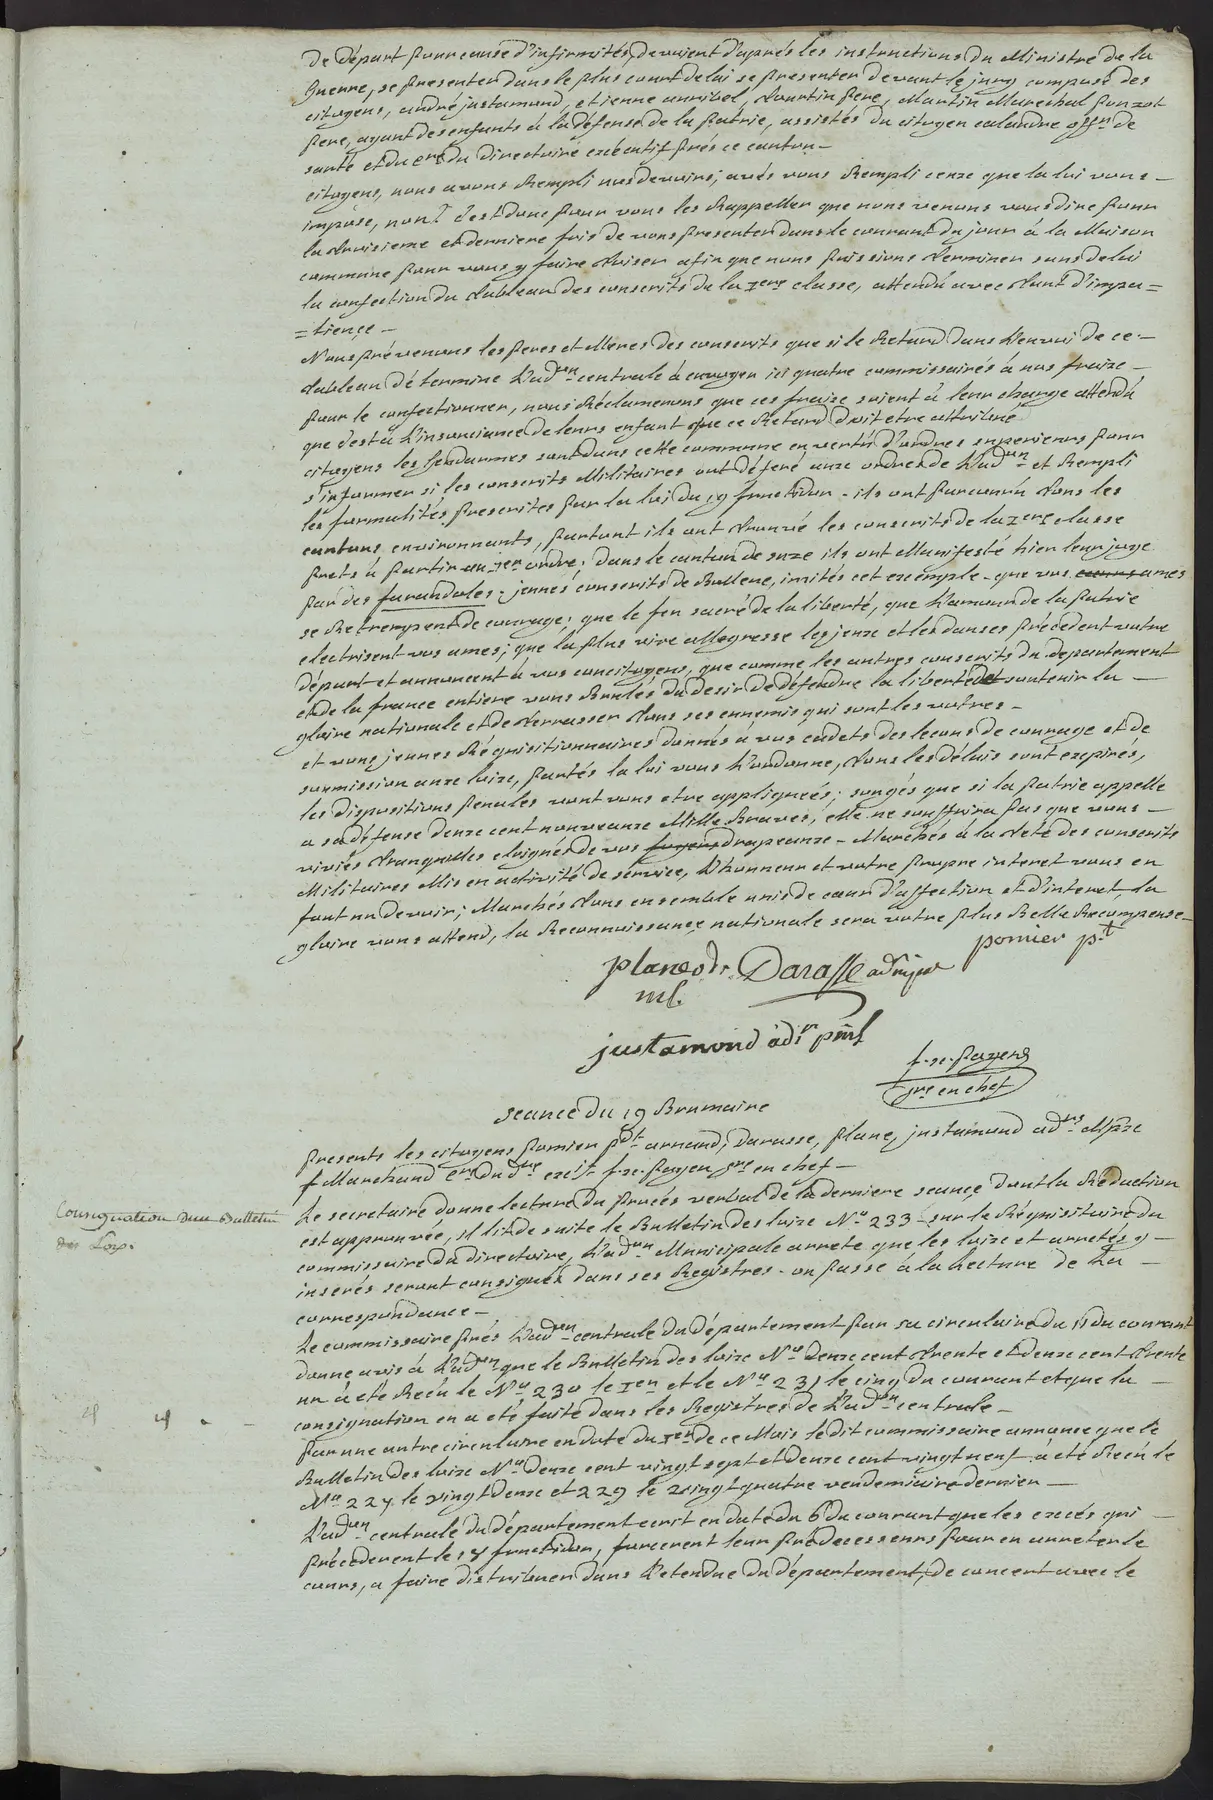 de départ pour cause d'infirmités, devoient d'aprés les instructions du Ministre de la
Guerre, se presenter dans le plus court delai se presenter devant le jury composé des
citoyens, andré justamond, etienne annibel, tourtin pere, Martin Marechal ponzot
pere, ayant des enfants à la défense de la patrie, assistés du citoyen calandre offer de
santé et du cre du Directoire exécutif prés ce canton –
citoyens, nous avons Rempli nos devoirs; avés vous Rempli ceux que la loi vous –
impose, non? c'est donc pour vous les Rappeller que nous venons vous dire pour
la troisieme et derniere fois de vous presenter dans le courant du jour à la Maison
commune pour vous y faire toiser afin que nous puissions terminer sans delai
la confection du tableau des conscrits de la 1ere classe, attendu avec tant d'impa=
=tience –
Nous prévenons les peres et Mères des conscrits que si le Retard dans l'envoi de ce –
tableau détermine l'adon centrale à envoyer ici quatre commissairés à nos fraix –
pour le confectionner, nous Réclamerons que ces fraix soient à leur charge attendu
que c'est à l'insouciance de leurs enfant que ce Retard doit etre attribué
citoyens les gendarmes sont dans cette commune en vertu d'ordres superieurs pour
s'informer si les conscrits Militaires ont déferé aux ordres de l'adon et Rempli
les formalités prescrites par la loi du 19 fructidor – ils ont parcouru tous les
cantons environnants, partout ils ont trouvé les conscrits de la 1ere classe
prets à partir au 1er ordre; dans le canton de suze ils ont Manifesté hier leur joye
par des farandoles – jeunes conscrits de Bollene, imités cet exemple – que vos ames
se Retrempent de courage; que le feu sacré de la liberté, que l'amour de la patrie
electrisent vos ames; que la plus vive allegresse les jeux et les danses précédent votre
départ et annoncent à vos concitoyens, que comme les autres conscrits du departement
et de la france entiere vous Brulés du desir de défendre la liberté de soutenir la –
gloire nationale et de terrasser tous ses ennemis qui sont les votres –
et vous jeunes Réquisitionnaires donnés à vos cadets des leçons de courage et de
soumission aux loix, partés la loi vous l'ordonne, tous les délais sont expirés,
les dispositions penales vont vous etre appliqueés; songés que si la patrie appelle
a sa défense deux cent nouveaux Mille Braves, elle ne souffrira pas que vous –
viviés tranquilles eloignés de vos drapeaux – Marchés à la teté des conscrits
Militaires Mis en activité de service, l'honneur et votre propre interet vous en
font un devoir; Marchés tous ensemble unis de cœur d'affection et d'interet, la
gloire vous attend, la Reconnoissançe nationale sera votre plus Belle Recompense –
pomier pt
plane adr Darasse admipx
ml.
justamond adr pml
f.-x. payen
sre en chef
seance du 19 Brumaire
presents les citoyens pomier pdt arnaud, darasse, plane, justamond adrs Mpx
f Marchand cre du dre exif f.-x. payen sre en chef –
Consignation dun Bulletin
des Loix.
Le secretaire donne lecture du procés verbal de la derniere seançe dont la Rédaction
est approuvée, il lit de suite le Bulletin des loix No 233 – sur le Réquisitoire du
commissaire du directoire, l'adon Municipale arrete que les loix et arretés y –
insérés seront consignés dans ses Registres – on passe à la lecture de la –
correspondance –
Le commissaire prés l'adon centrale du département par sa circulaire du 11 du courant
donne avis à l'adon que le Bulletin des loix No deux cent trente et deux cent trente
un à eté Recu le No 230 le 1er et le No 231 le cinq du courant et que la –
consignation en a eté faite dans les Registres de l'adon centrale –
par une autre circulaire en date du 1er de ce Mois ledit commissaire annonce que le
Bulletin des loix No deux cent vingt sept et deux cent vingt neuf à eté Recu le
No 227 le vingt deux et 229 le vingt quatre vendemiaire dernier –
L'adon centrale du département ecrit en date du 6 du courant que les excés qui –
précéderent le 18 fructidor, forcerent leur prédecesseurs pour en arréter le
cours, a faire distribuer dans l'etendue du département, de concert avec le